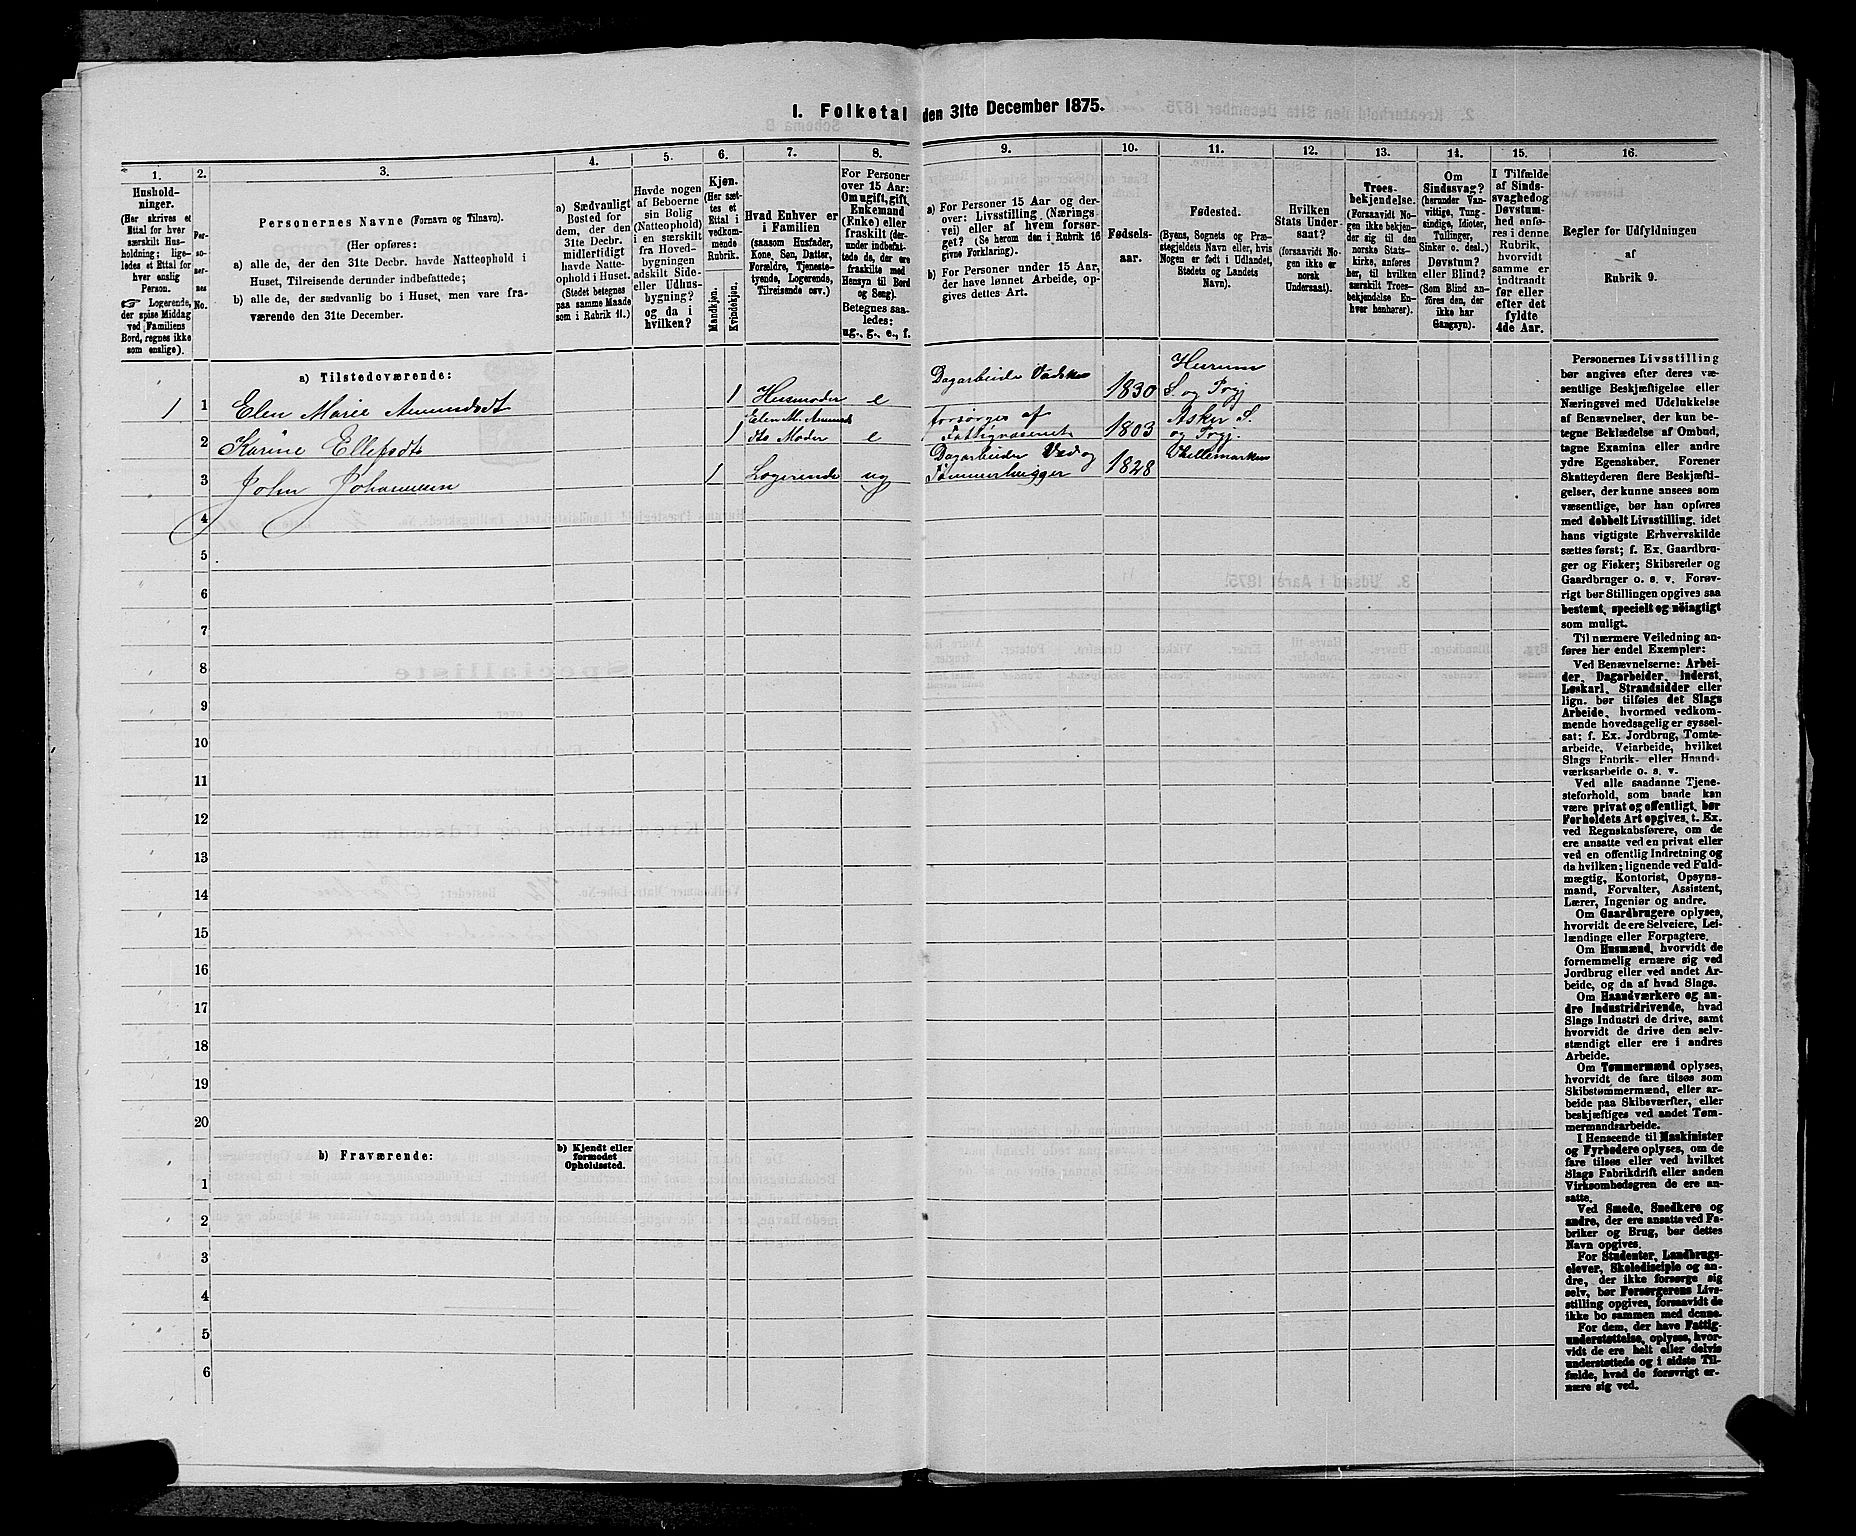 I. Folketal den 31te December 1875.
1.
2.
3.
4.
5.
6.
7.
8.
9.
10.
11.
12.
13.
14.
15.
16.
Hushold-
ninger.
(Her skrives et
Ettal for hver
særskilt Hus-
holdning; lige-
ledes et Ettal for
hver enslig
Person.
☞ Logerende,
der spise Middag
ved Familiens
Bord, regnes ikke
som enslige).
Per-
so-
ner-
nes
No.
Personernes Navne (Fornavn og Tilnavn).
(Her opføres:
a) alle de, der den 31te Decbr. havde Natteophold i
Huset, Tilreisende derunder indbefattede;
b) alle de, der sædvanlig bo i Huset, men vare fra-
værende den 31te December.
a) Sædvanligt
Bosted for
dem, der den
31te Decbr.
midlertidigt
havde Natte-
ophold i Huset.
(Stedet betegnes
paa samme Maade
som i Rubrik 11.)
Havde nogen
af Beboerne
sin Bolig
(Natteophold)
i en særskilt
fra Hoved-
bygningen
adskilt Side-
eller Udhus-
bygning?
og da i
hvilken?
Kjøn.
(Her sæt-
tes et
Ettal i
vedkom-
mende
Rubrik.
Mandkjøn.
Kvindekjøn.
Hvad Enhver er
i Familien
(saasom Husfader,
Kone, Søn, Datter,
Forældre, Tjeneste-
tyende, Logerende,
Tilreisende osv.)
For Personer
over 15 Aar:
Om ugift, gift,
Enkemand
(Enke) eller
fraskilt (der-
under indbefat-
tede da, der ere
fraskilte med
Hensyn til Bord
og Seng).
Betegnes saa-
ledes:
ug., g., e., f.
a) For Personer 15 Aar og der-
over: Livsstilling (Nærings-
vei) eller af hvem forsør-
get? (Se herom den i Rubrik 16
givne Forklaring).
b) For Personer under 15 Aar,
der have lønnet Arbeide, op-
gives dettes Art.
Fødsels-
aar.
Fødested.
(Byens, Sognets og Præ-
stegjeldets Navn eller, hvis
Nogen er født i Udlandet,
Stedets og Landets
Navn).
Hvilken
Stats Under-
saat?
(forsaavidt No-
gen ikke er
norsk
Undersaat).
Troes-
bekjendelse.
(Forsaavidt No-
gen ikke bekjen-
der sig til den
norske Stats-
kirke, anføres
her, til hvilken
særskilt Troes-
bekjendelse En-
hver henhører).
Om
Sindssvag?
(herunder Van-
vittige, Tung-
sindige, Idioter,
Tullinger,
Sinker o. desl.)
Døvstum?
eller Blind?
(Som Blind an-
føres den, der
ikke har
Gangsyn).
I Tilfælde
af Sinds-
svaghed og
Døvstum-
hed anfø-
res i denne
Rubrik,
hvorvidt
samme er
indtraadt
før eller
efter det
fyldte
4de Aar.
Regler for Udfyldningen
af
Rubrik 9.
a) Tilstedeværende:
1 1 Elen Marie Amundsdt 1 Husmoder e Dagarbeide Vadsker 1830 Hurum S. og Prgj
2 Karine Ellefsdt 1 Elen M. Amunds dts Moder e forsørges af Fattigvæsenet 1803 Asker S. og Prgj.
3 John Johannesen 1 Logerende ug Dagarbeider Ved og Tømmerhugger 1828
4
5
6
7
8
9
10
11
12
13
14
15
16
17
18
19
20
b) Fraværende:
b) Kjendt eller
formodet
Opholdssted.
1
2
3
4
5
6
Personernes Livsstilling
bør angives efter deres væ-
sentlige Beskjæftigelse eller
Næringsvei med Udelukkelse
af Benævnelser, der kun be-
tegne Beklædelse af Ombud,
tagne Examina eller andre
ydre Egenskaber. Forener
Skatteyderen flere Beskjæfti-
gelser, der kunne ansees som
væsentlige, bør han opføres
med dobbelt Livsstilling, idet
hans vigtigste Erhvervskilde
sættes først; f. Ex. Gaardbru-
ger og Fisker; Skibsreder og
Gaardbruger o. s. v. Forøv-
rigt bør Stillingen opgives saa
bestemt, specielt og nøiagtigt
som muligt.
Til nærmere Veiledning an-
føres her endel Exempler:
Ved Benævnelserne: Arbei-
der, Dagarbeider, Inderst,
Løskarl, Strandsidder eller
lign. bør tilføies det Slags
Arbeide, hvormed vedkom-
mende hovedsagelig er syssel-
sat; f. Ex. Jordbrug, Tomte-
arbeide, Veiarbeide, hvilket
Slags Fabrik- eller Haand-
værksarbeide o. s. v.
Ved alle saadanne Tjene-
steforhold, som baade kan
være privat og offentligt, bør
Forholdets Art opgives, t. Ex.
ved Regnskabsførere, om de
ere ansatte ved en privat eller
ved en offentlig Indretning og
da hvilken; lignende ved Fuld-
mægtig, Kontorist, Opsyns-
mand, Forvalter, Assistent,
Lærer, Ingeniør og andre.
Om Gaardbrugere oplyses,
hvorvidt de ere Selveiere, Lei-
lændinge eller Forpagtere.
Om Husmænd, hvorvidt de
fornemmelig ernære sig ved
Jordbrug eller ved andet Ar-
beide, og da af hvad Slags.
Om Haandværkere og an-
dre Industridrivende, hvad
Slags Industri de drive, samt
hvorvidt de drive den selv-
stændigt eller ere i andres
Arbeide.
Om Tømmermænd oplyses,
hvorvidt de fare tilsøs som
Skibstømmermænd, eller ar-
beide paa Skibsværfter, eller
beskjæftiges ved andet Tøm-
mermandsarbeide.
I Henseende til Maskinister
og Fyrbødere oplyses, om de
fare tilsøs eller ved hvilket
Slags Fabrikdrift eller anden
Virksomhedsgren de ere an-
satte.
Ved Smede, Snedkere og
andre, der ere ansatte ved Fa-
briker og Brug, bør dettes
Navn opgives.
For Studenter, Landbrugs-
elever, Skoledisciple og an-
dre, der ikke forsørge sig
selv, bør Forsørgerens Livs-
stilling opgives, forsaavidt de
ikke bo sammen med denne.
For dem, der have Fattig-
understøttelse, oplyses, hvor-
vidt de ere helt eller delvis
understøttede og i sidste Til-
fælde, hvad de forøvrigt er-
nære sig ved.